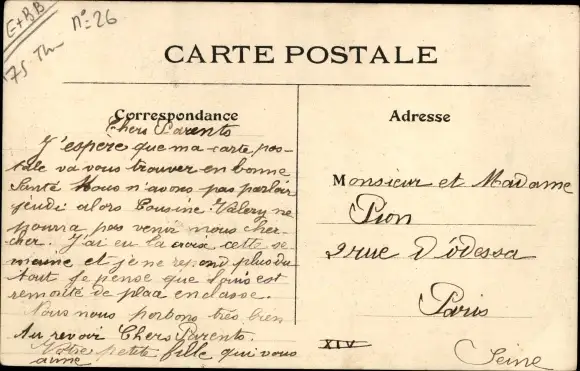 E+BB
n°26
75 Th
CARTE POSTALE
Correspondance
Chers Parents
J'espère que ma carte pos-
tale va vous trouver en bonne
santé Nous n'avons pas parloir
jeudi alors Cousine Valery ne
pourra pas venir nous cher-
cher. J'ai eu la croix cette se
maine et je ne repond plus du
tout Je pense que Louis est
remonté de place en classe.
Nous nous portons très bien
Au revoir Chers Parents.
Votre petite fille qui vous
aime
Adresse
Monsieur et Madame
Pion
9 rue D'odessa
Paris
XIV
Seine